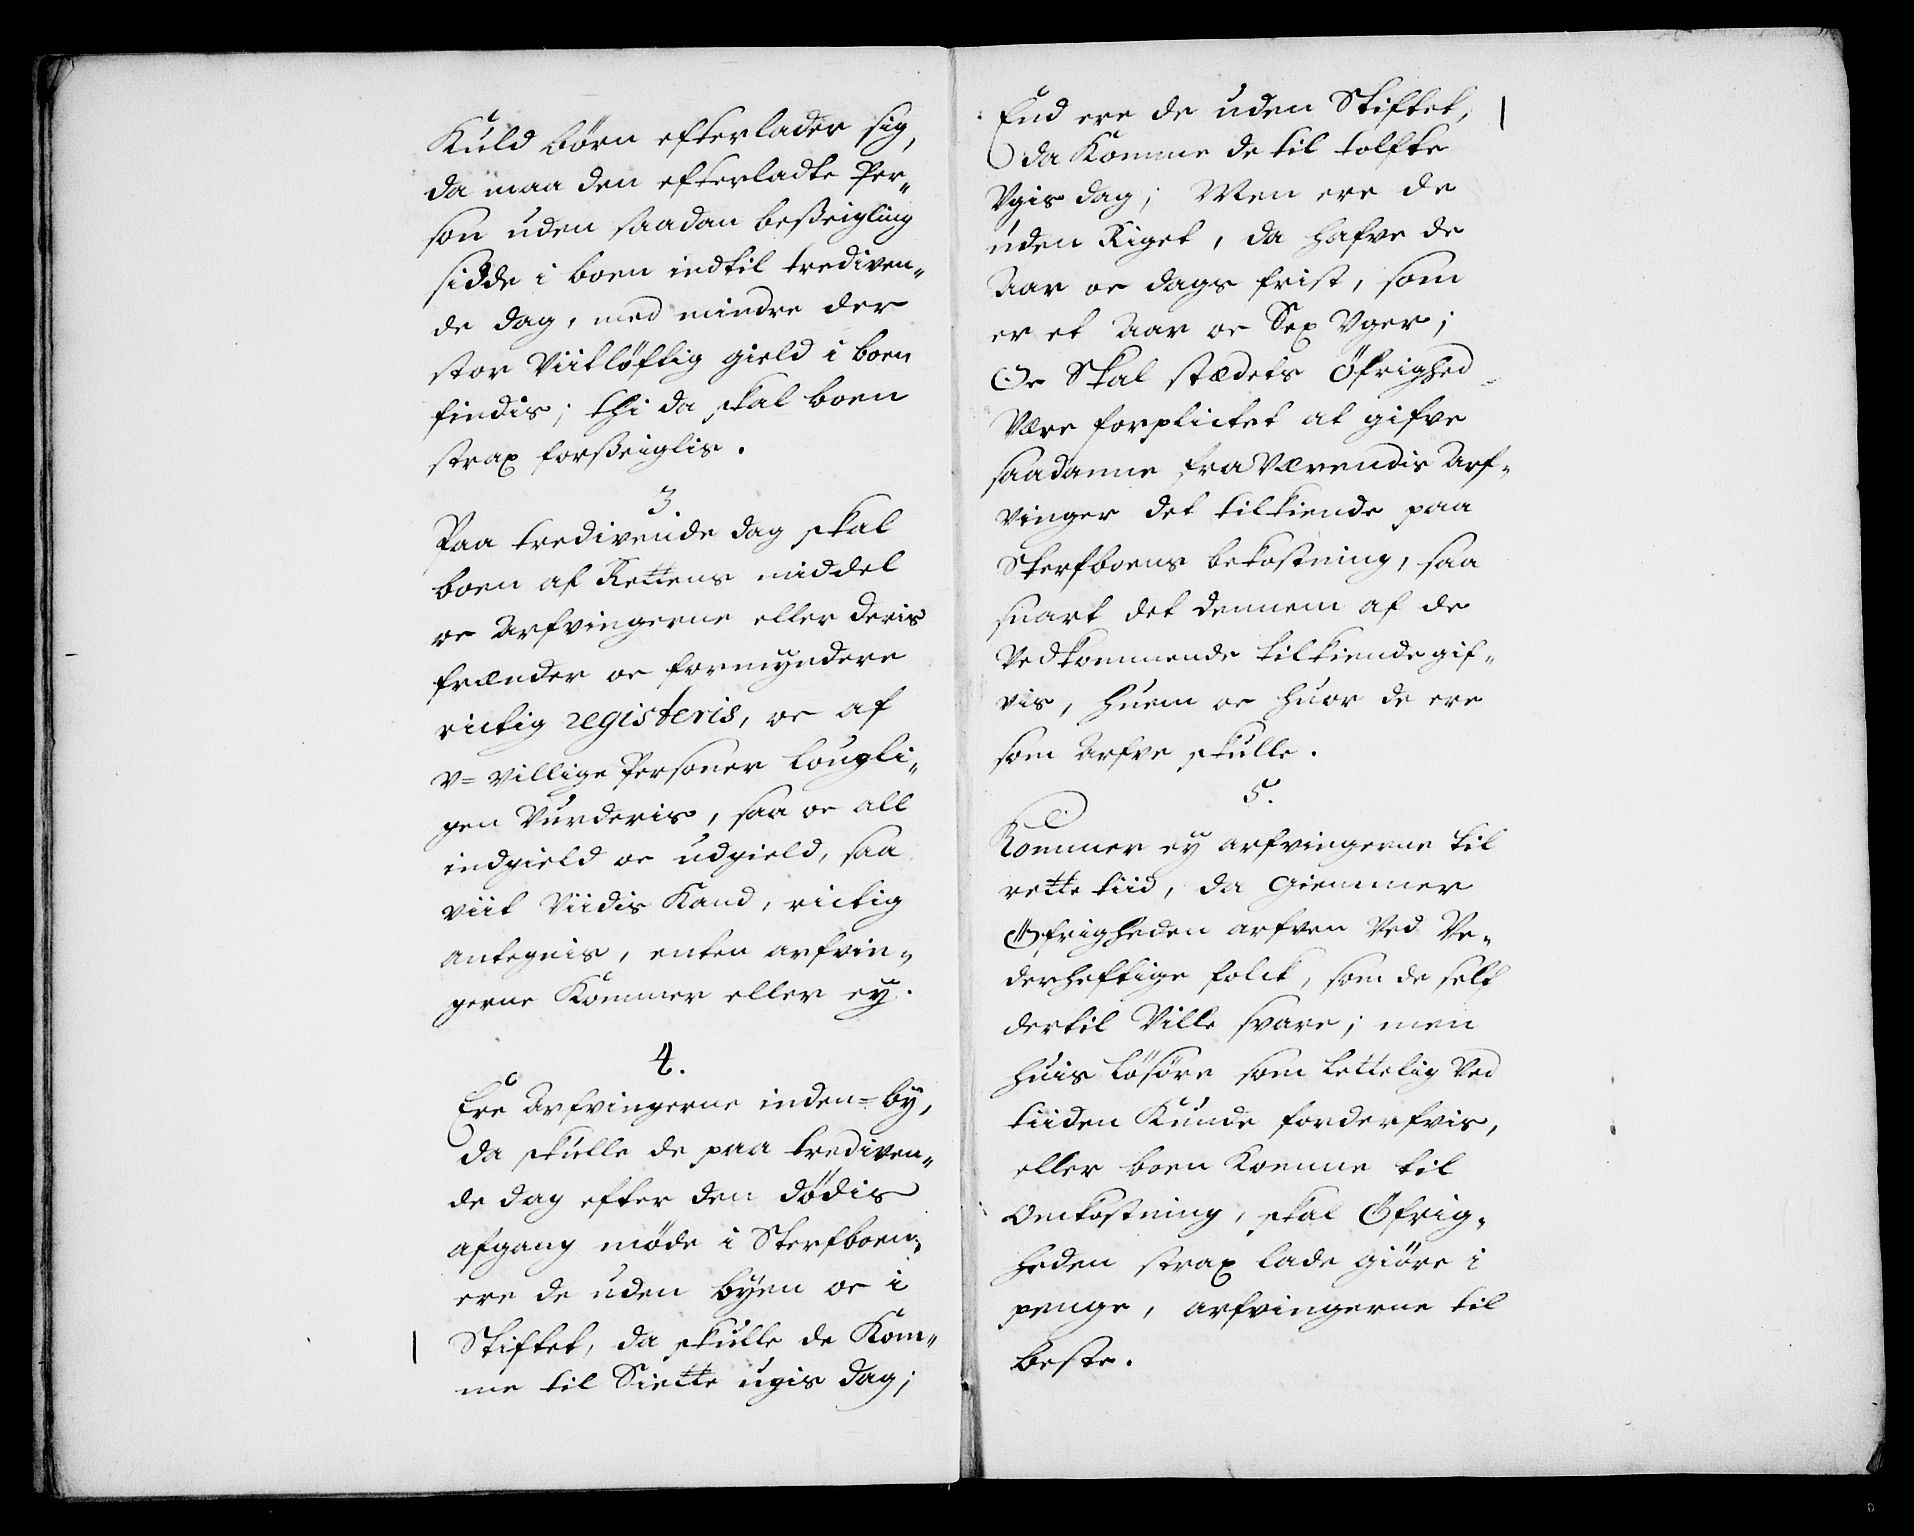 Kuld børn efterlader sig,
da maa den efterladte Per„
son uden saadan besseigling
sidde i boen indtil trediven„
de dag, med mindre der
stor Viitløftig gield i boen
findis; thi da skal boen
strax forsseiglis.
3.
Paa tredivende dag skal
boen af Rettens middel
oc Arfvingerne eller deris
frænder oc formyndere
rictig registeris, oc af
v=villige Personer lougli„
gen Vurderis, saa oc all
indgield oc udgield, saa
viit Viidis Kand, rictig
antegnis, enten arfvin„
gerne Kommer eller ey.
4.
Ere Arfvingerne inden=by,
da skulle de paa trediven„
de dag efter den dødis
afgang møde i Sterfboen,
ere de uden byen oc i
Stiftet, da skulle de Kom„
me til Siette ugis dag;
End ere de uden Stiftet,
da Komme de til tolfte
Vgis dag; Men ere de
uden Riget, da hafve de
Aar oc dags frist, som
er et Aar oc Sex Vger;
Oc Skal stædets Øfrighed
Være forplictet at gifve
saadanne fra Værendis Arf„
vinger det tilkiende paa
Sterfboens bekostning, saa
snart det dennem af de
Vedkommende tilkiende gif„
vis, huem oc huor de ere
som Arfve skulle.
5.
Kommer ey arfvingerne til
rette tiid, da Giemmer
Øfrigheden arfven Ved Ve„
derheftige folck, som de self
dertil Ville svare; men
huis Løsøre som Lettelig Ved
tiiden Kunde forderfvis,
eller boen Komme til
Omkostning, skal Øfrig„
heden strax lade giøre i
penge, arfvingerne til
beste.